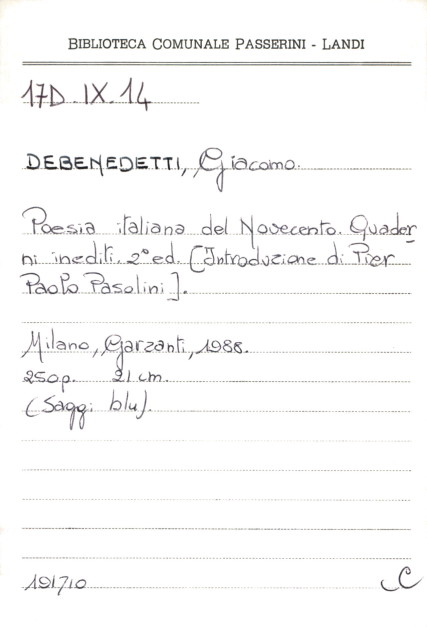 BIBLIOTECA COMUNALE PASSERINI - LANDI
17D.IX.14
DEBENEDETTI, Giacomo.
Poesia italiana del Novecento. Quader-
ni inediti. 2° ed. [Introduzione di Pier
Paolo Pasolini].
Milano, Garzanti, 1988.
250p. 21 cm.
(Saggi blu).
191710
C